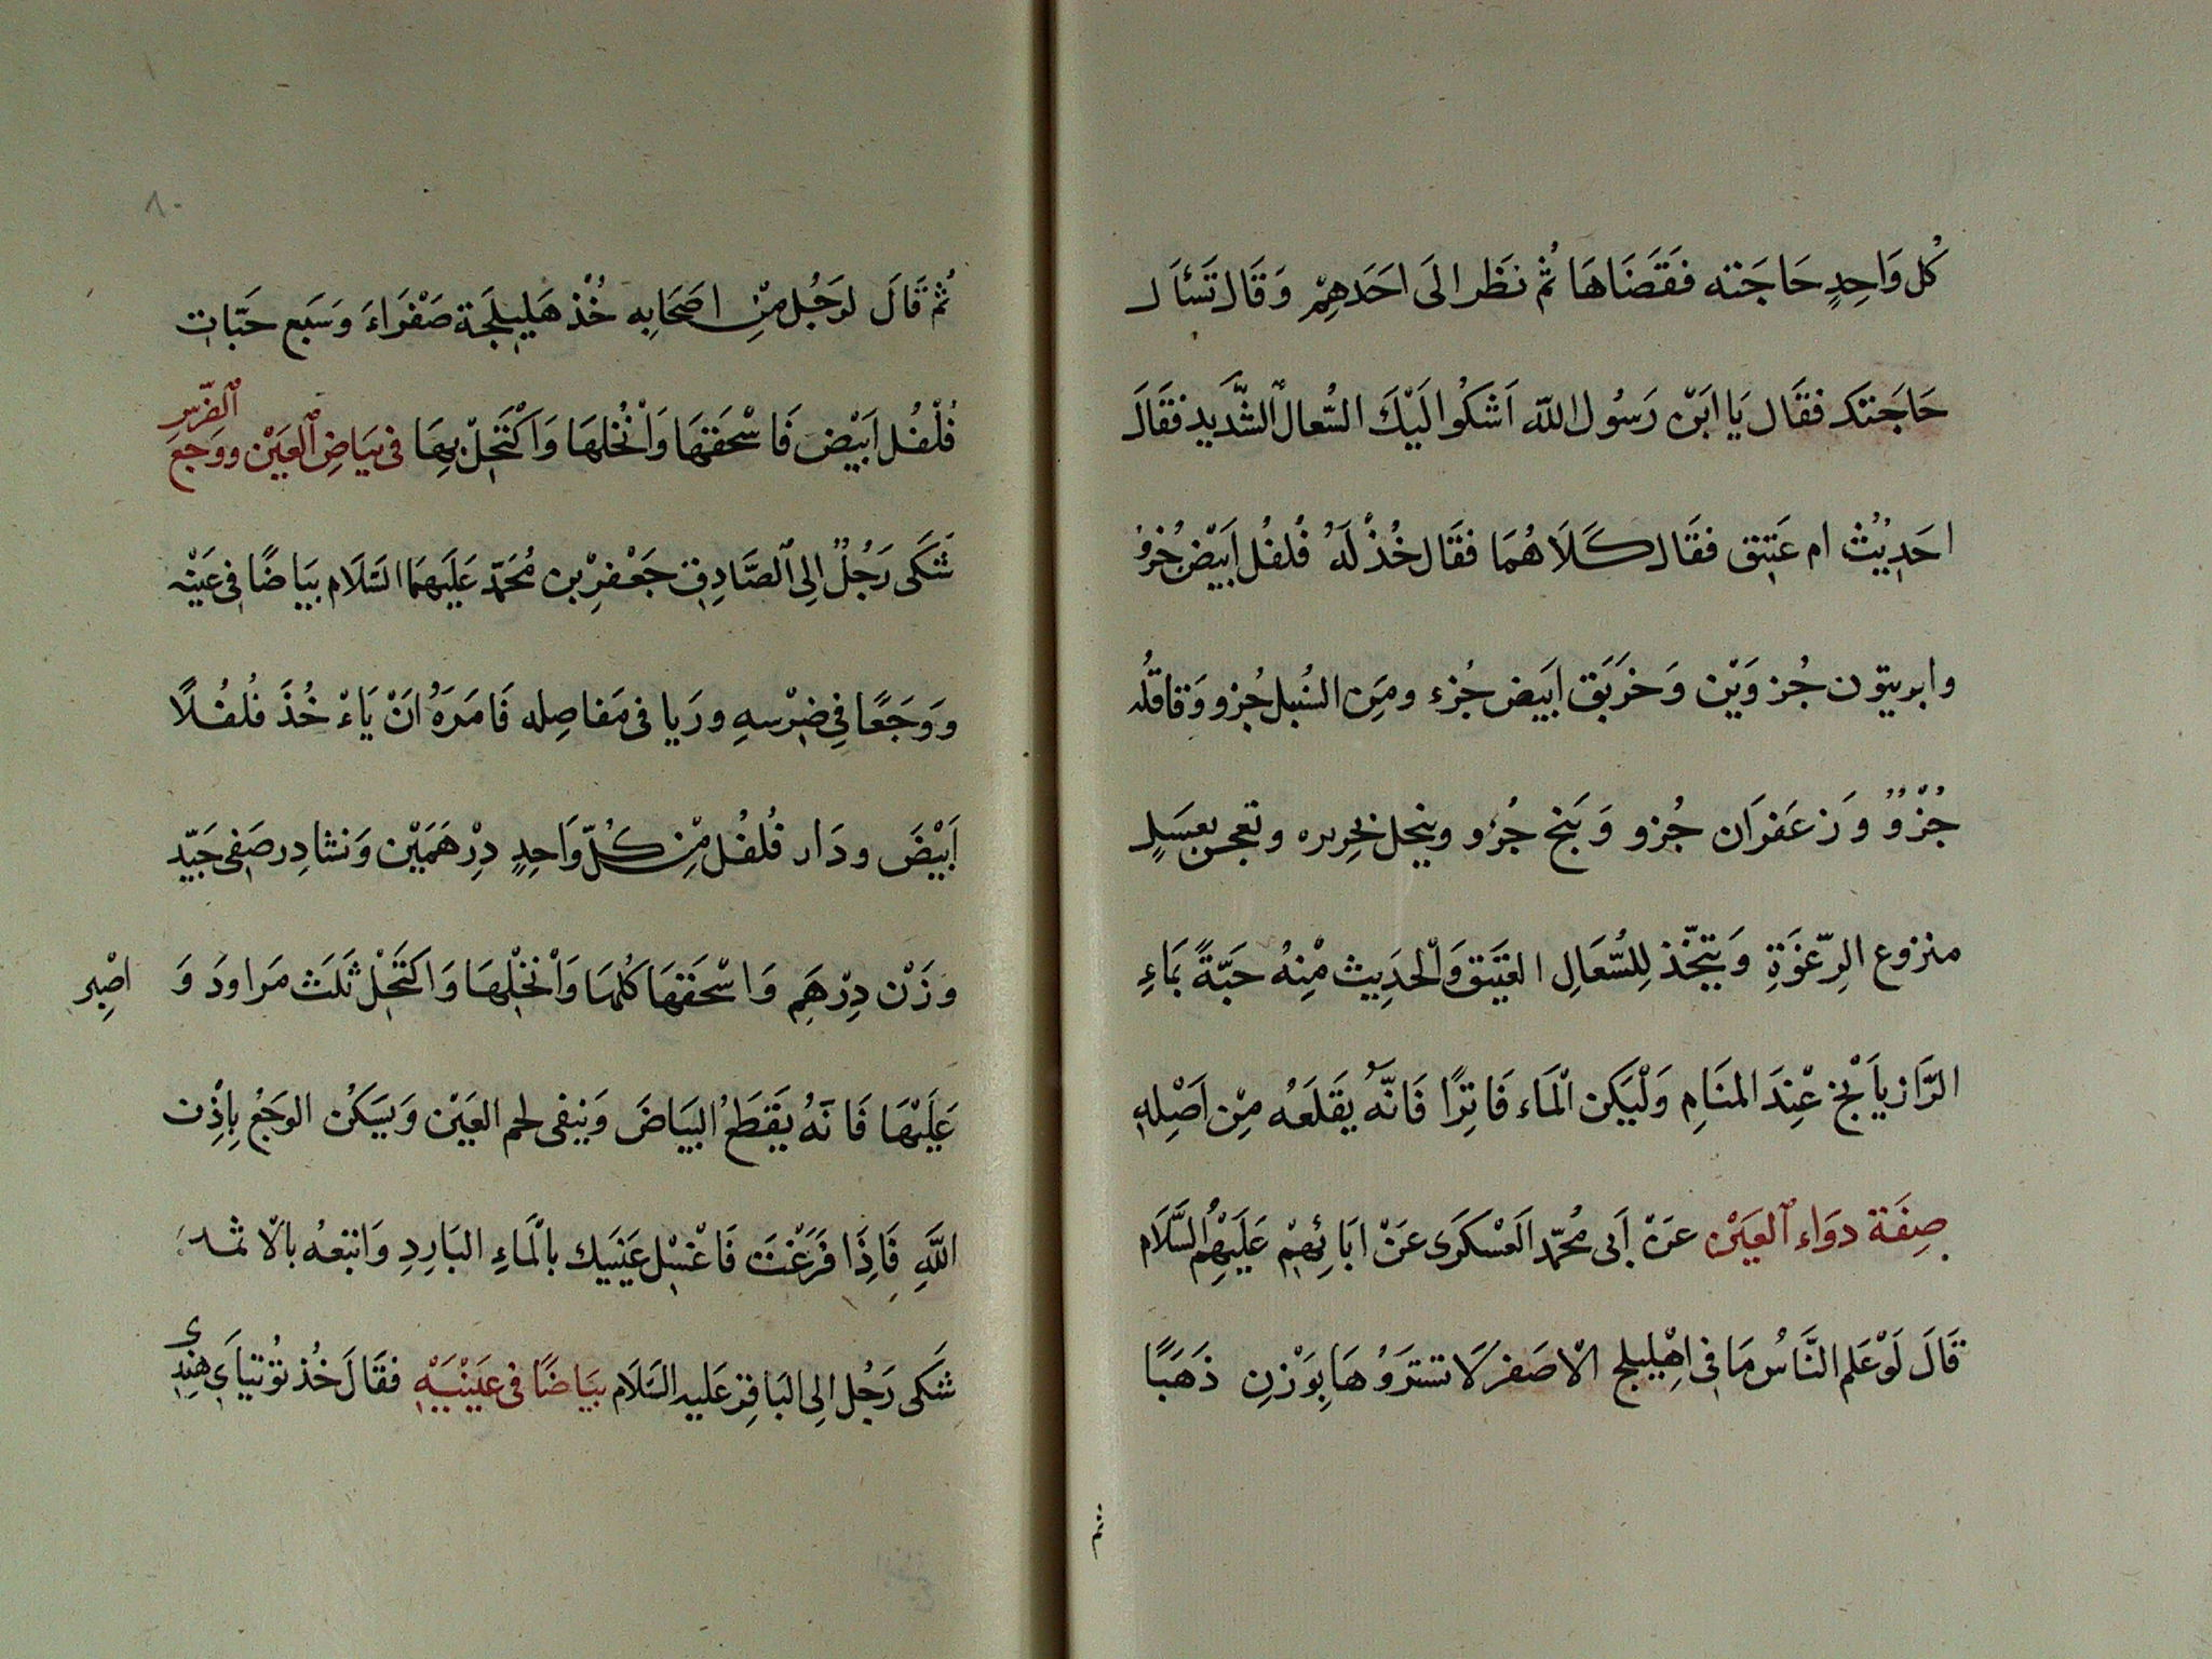 كُل وَاحِدٍ حَاجَته فَقَضَاهَا ثُم نَظَر الَى احَدهِمْ وَقَال تَسْأَل
حَاجَتك فقَال يَا ابَنْ رَسُول الله اَشكوُ الَيْكَ السُّعال الشَّديد فقَالَ
احَدِيْثٌ ام عَتِيق فقَال كَلَاهُمَا فقَال خُذْ لَهُ فُلفُل اَبيَض جُزوُ
وابريتون جُزوَيْن وَخَربَق ابَيض جُزء ومَن السُنبل جُزو وَقاقله
جُزْوٌ وَزعَفرَان جُزو وَبَنج جُزو وينحل بحريره وتعجن بعسَلٍ
منزوع الرِّغوَةِ وَيتخّذ لِلسُّعَالِ العَتيق وَالْحدَيِث مْنِهُ حَبّةً بمَاءِ
الرَّازيَانْج عْنِدَ المنَامِ وَلْيَكن الْمَاء فَاتِرًا فَانّهُ يَقلَعُه مِنْ اَصْلِهِ
صِفَة دوَاء العَيْن عَنْ اَبى مُحمّد العَسْكَرَى عَنْ ابَائِهِمْ عَلَيْهِمُ السَّلَام
قَالَ لَوْ عَلم النَّاسُ مَا فى اِهْلِيلج الْاصَفر لَا تشترَوُهَا بِوَزْنِ ذَهَبًا
٨٠
ثُم قَالَ لرَجُل مِّنِ اصَحَابِه خُذْ هَليلَجَة صَفْرَاءَ وَسَبع حَبّات
فُلْفُل اَبَيْضَ فَاسْحَقهَا وَانْخُلهَا وَاكْتَحِلْ بِهَا فى بيَاضِ العَيْن ووَجعَ
الضّرس
شَكَى رَجُلٌ الِى الصَّادِق جَعْفرْ بن مُحَمّد عَلَيهمَا السَلَام بيَاضًا فى عَيْنه
وَوَجَعًا فِى ضِرْسهِ وريَا فى مَفاصِله فَامَرَهُ انَْ يَاءْخُذَ فُلفُلًا
اَبَيْضَ ودَار فُلفُل مِْن كُلّ وَاحِدٍ دِرْهَمَيْن وَنشادِر صَفى جَيّد
وَزَنْ دِرْهَم وَاسْحَقهَا كُلهَا وَانْخْلِهَا وَاكتَحَلْ ثَلَث مَراودَ وَ
اصْبِر
عَلَيْهَا فَانَهُ يَقَطَعُ البيَاضَ وَينفى لحم العَيْن وَيسَكنُ الوجَعُ بِاذْن
اللَّهِ فَاِذَا فَرَغْتَ فَاغْسْل عَيْنَيك بالْمَاءِ البَارِدِ وَاتبعهُ بالْاثمد
شَكى رَجُل الِى البَاقِر عَليه السَلَام بيَاضًا فى عَيْنيَهِْ فقَالَ خُذ تُوتيَاى هِندِى